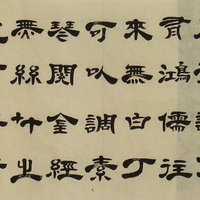 有鴻儒往
來無白丁
可以調素
琴閱金經
無絲竹之